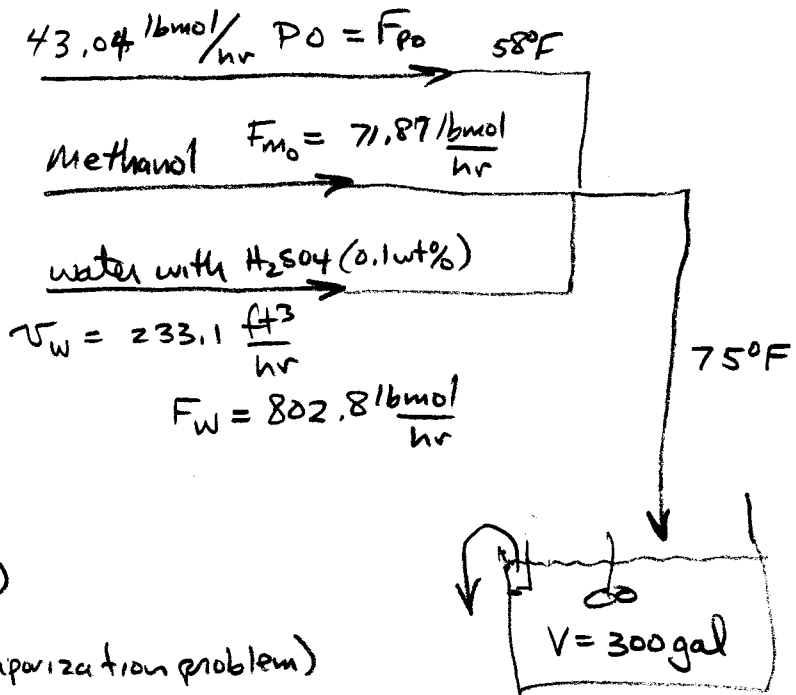 43.04 lbmol/hr PO = F_PO 58°F
Methanol F_M₀ = 71.87 lbmol/hr
water with H₂SO4 (0.1wt%)
v_W = 233.1 ft³/hr
F_W = 802.8 lbmol/hr
75°F
)
V = 300 gal
problem)